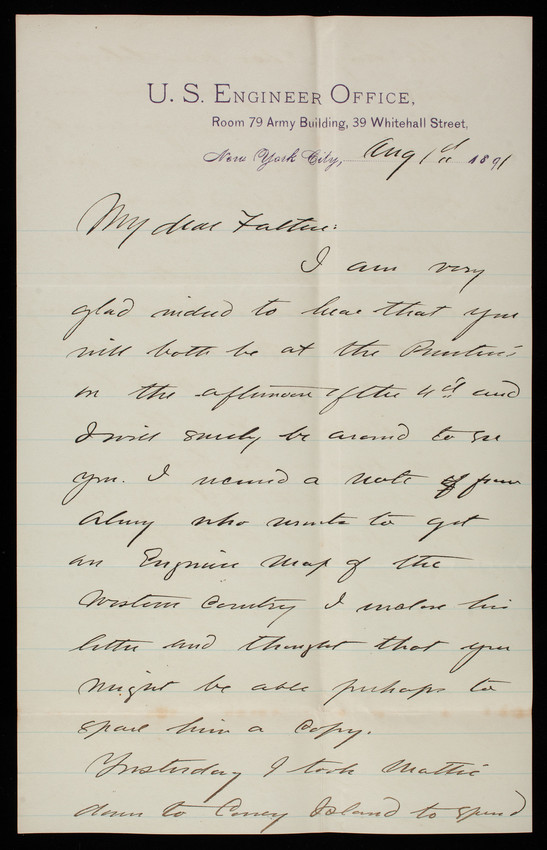 U. S. ENGINEER OFFICE,
Room 79 Army Building, 39 Whitehall Street,
New York City, Aug 1st 1891
My dear Father:
I am very
glad indeed to hear that you
will both be at the
on the afternoon of the 4th and
I will surely be around to see
you. I received a note from
Almy who wants to get
an Engineer Map of the
Western Country I inclose his
letter and thought that you
might be able perhaps to
spare him a copy.
Yesterday I took Mattie
down to Coney Island to spend